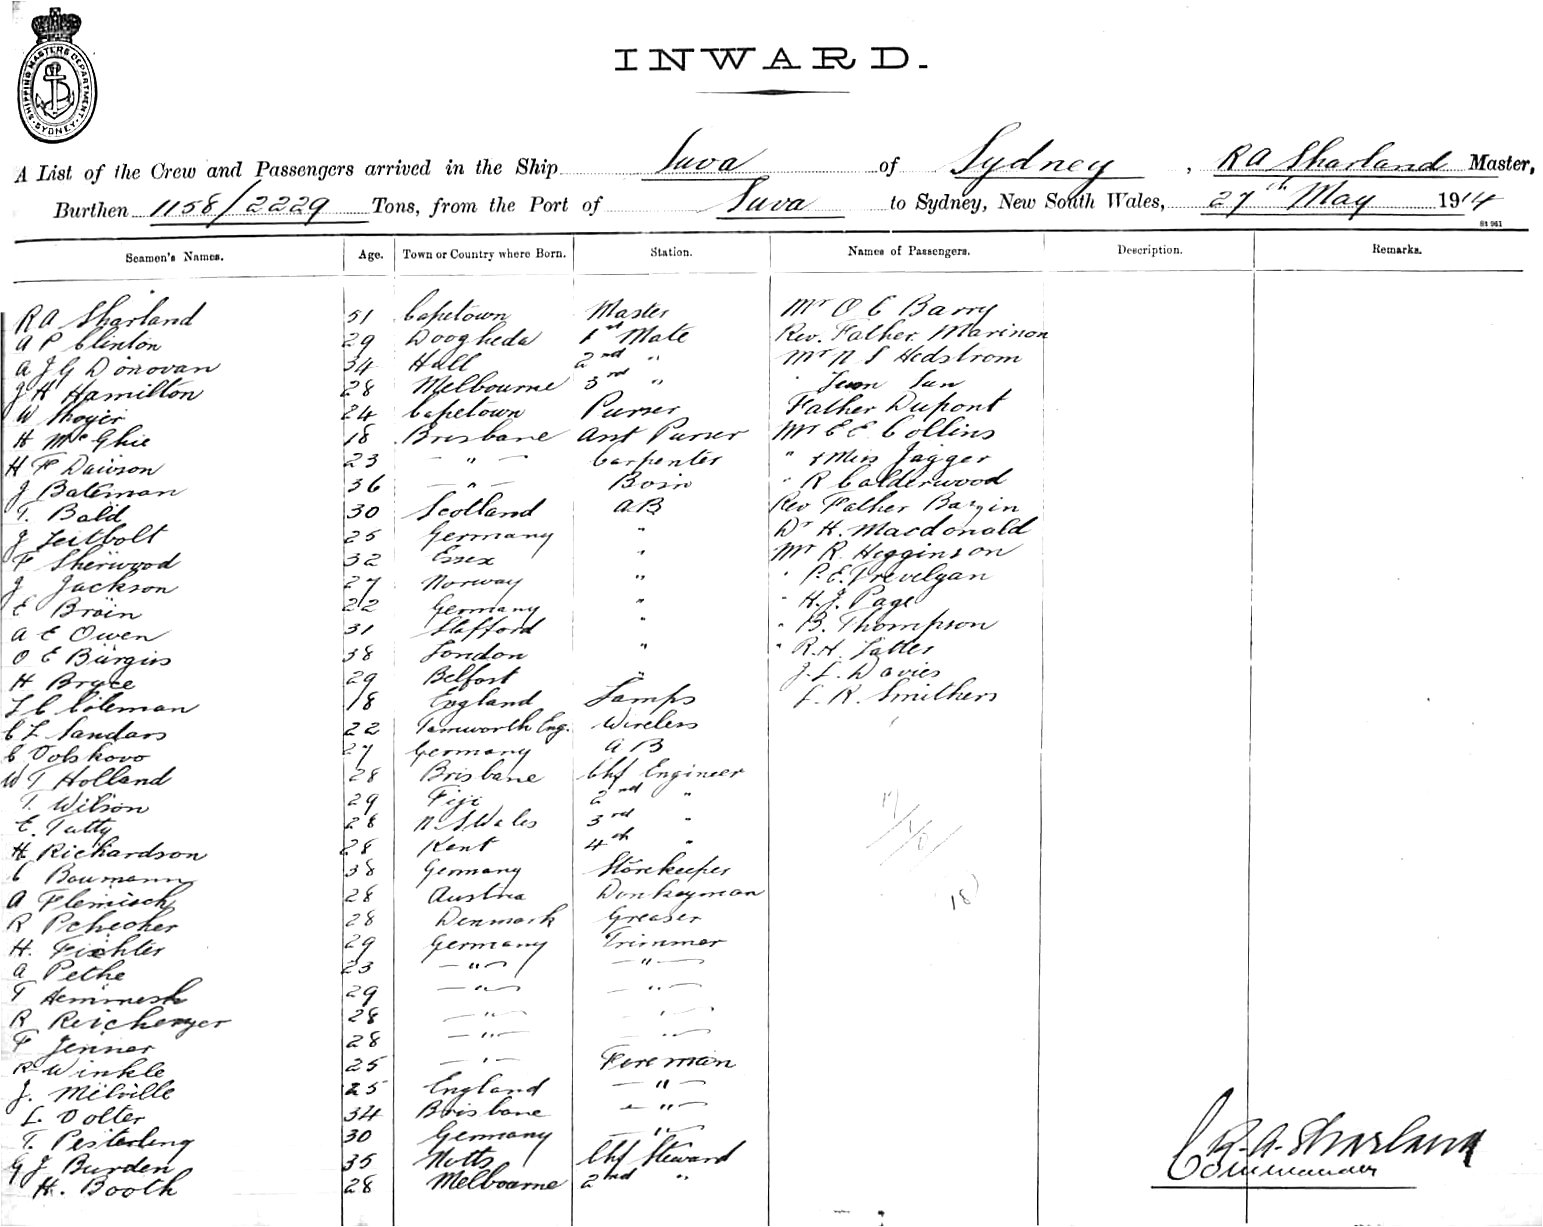 SHIPPING MASTERS DEPARTMENT SYDNEY
INWARD.
A List of the Crew and Passengers arrived in the Ship Suva of Sydney, R A Sharland Master,
Burthen 1158/2229 Tons, from the Port of Suva to Sydney, New South Wales, 27th May 1914
Seamen's Names. Age. Town or Country where Born. Station. Names of Passengers. Description. Remarks.
R A Sharland 51 Capetown Master Mr O C Barry
A P Clinton 29 Doogheda 1st Mate Rev. Father Marinon
A J G Donovan 34 Hull 2nd " Mr N S Hedstrom
J H Hamilton 28 Melbourne 3rd " Sun
W 24 Capetown Purser Father Dupont
H McGhie 18 Brisbane Asst Purser Mr E E Collins
H F Dawson 23 " Carpenter " & Miss Jagger
J Bateman 36 " Bosn " R Calderwood
T. Bald 30 Scotland AB Rev Father Bazin
J Leitbolt 25 Germany " Dr H. Macdonald
F Sherwood 32 Essex " Mr R. Higginson
J Jackson 27 Norway " " P. E. Trevelyan
E Bröin 22 Germany " " H. J. Page
A E Owen 31 Stafford " " B. Thompson
O E Bürgins 38 London " " R. H.
H Bryce 29 Belfast " J. L. Davies
L C Coleman 18 England Lamps L. R. Smithers
C L Sandars 22 Tamworth Eng. Wireless
C Volskovo 27 Germany AB
W T Holland 28 Brisbane Chf Engineer
T. Wilson 29 Fiji 2nd "
E. Tatty 28 N. S Wales 3rd "
H Richardson 28 Kent 4th "
C Baumann 38 Germany Storekeeper
A Flemisch 28 Austria Donkeyman
R Pchecher 28 Denmark Greaser
H. Fichter 29 Germany Trimmer
A Pethe 23 " "
T 29 " "
R 28 " "
F Jenner 28 " "
R Winkle 25 " Fireman
J. Melville 25 England "
L. Dolter 34 Brisbane "
T. Pesterling 30 Germany "
G J Burden 35 Notts Chf Steward
H. Booth 28 Melbourne 2nd "
18
R. A. Sharland
Commander